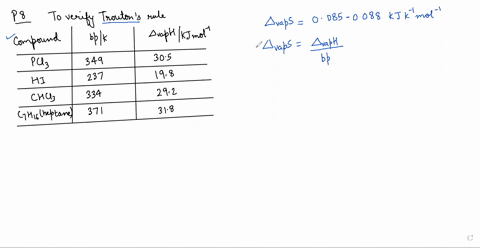 P8 To verify Trouton's rule
Compound bp/K ΔvapH/KJmol⁻¹
PCl₃ 349 30.5
HI 237 19.8
CHCl₃ 334 29.2
C₇H₁₆(heptane) 371 31.8
ΔvapS = 0.085-0.088 KJK⁻¹mol⁻¹
ΔvapS = ΔvapH
bp